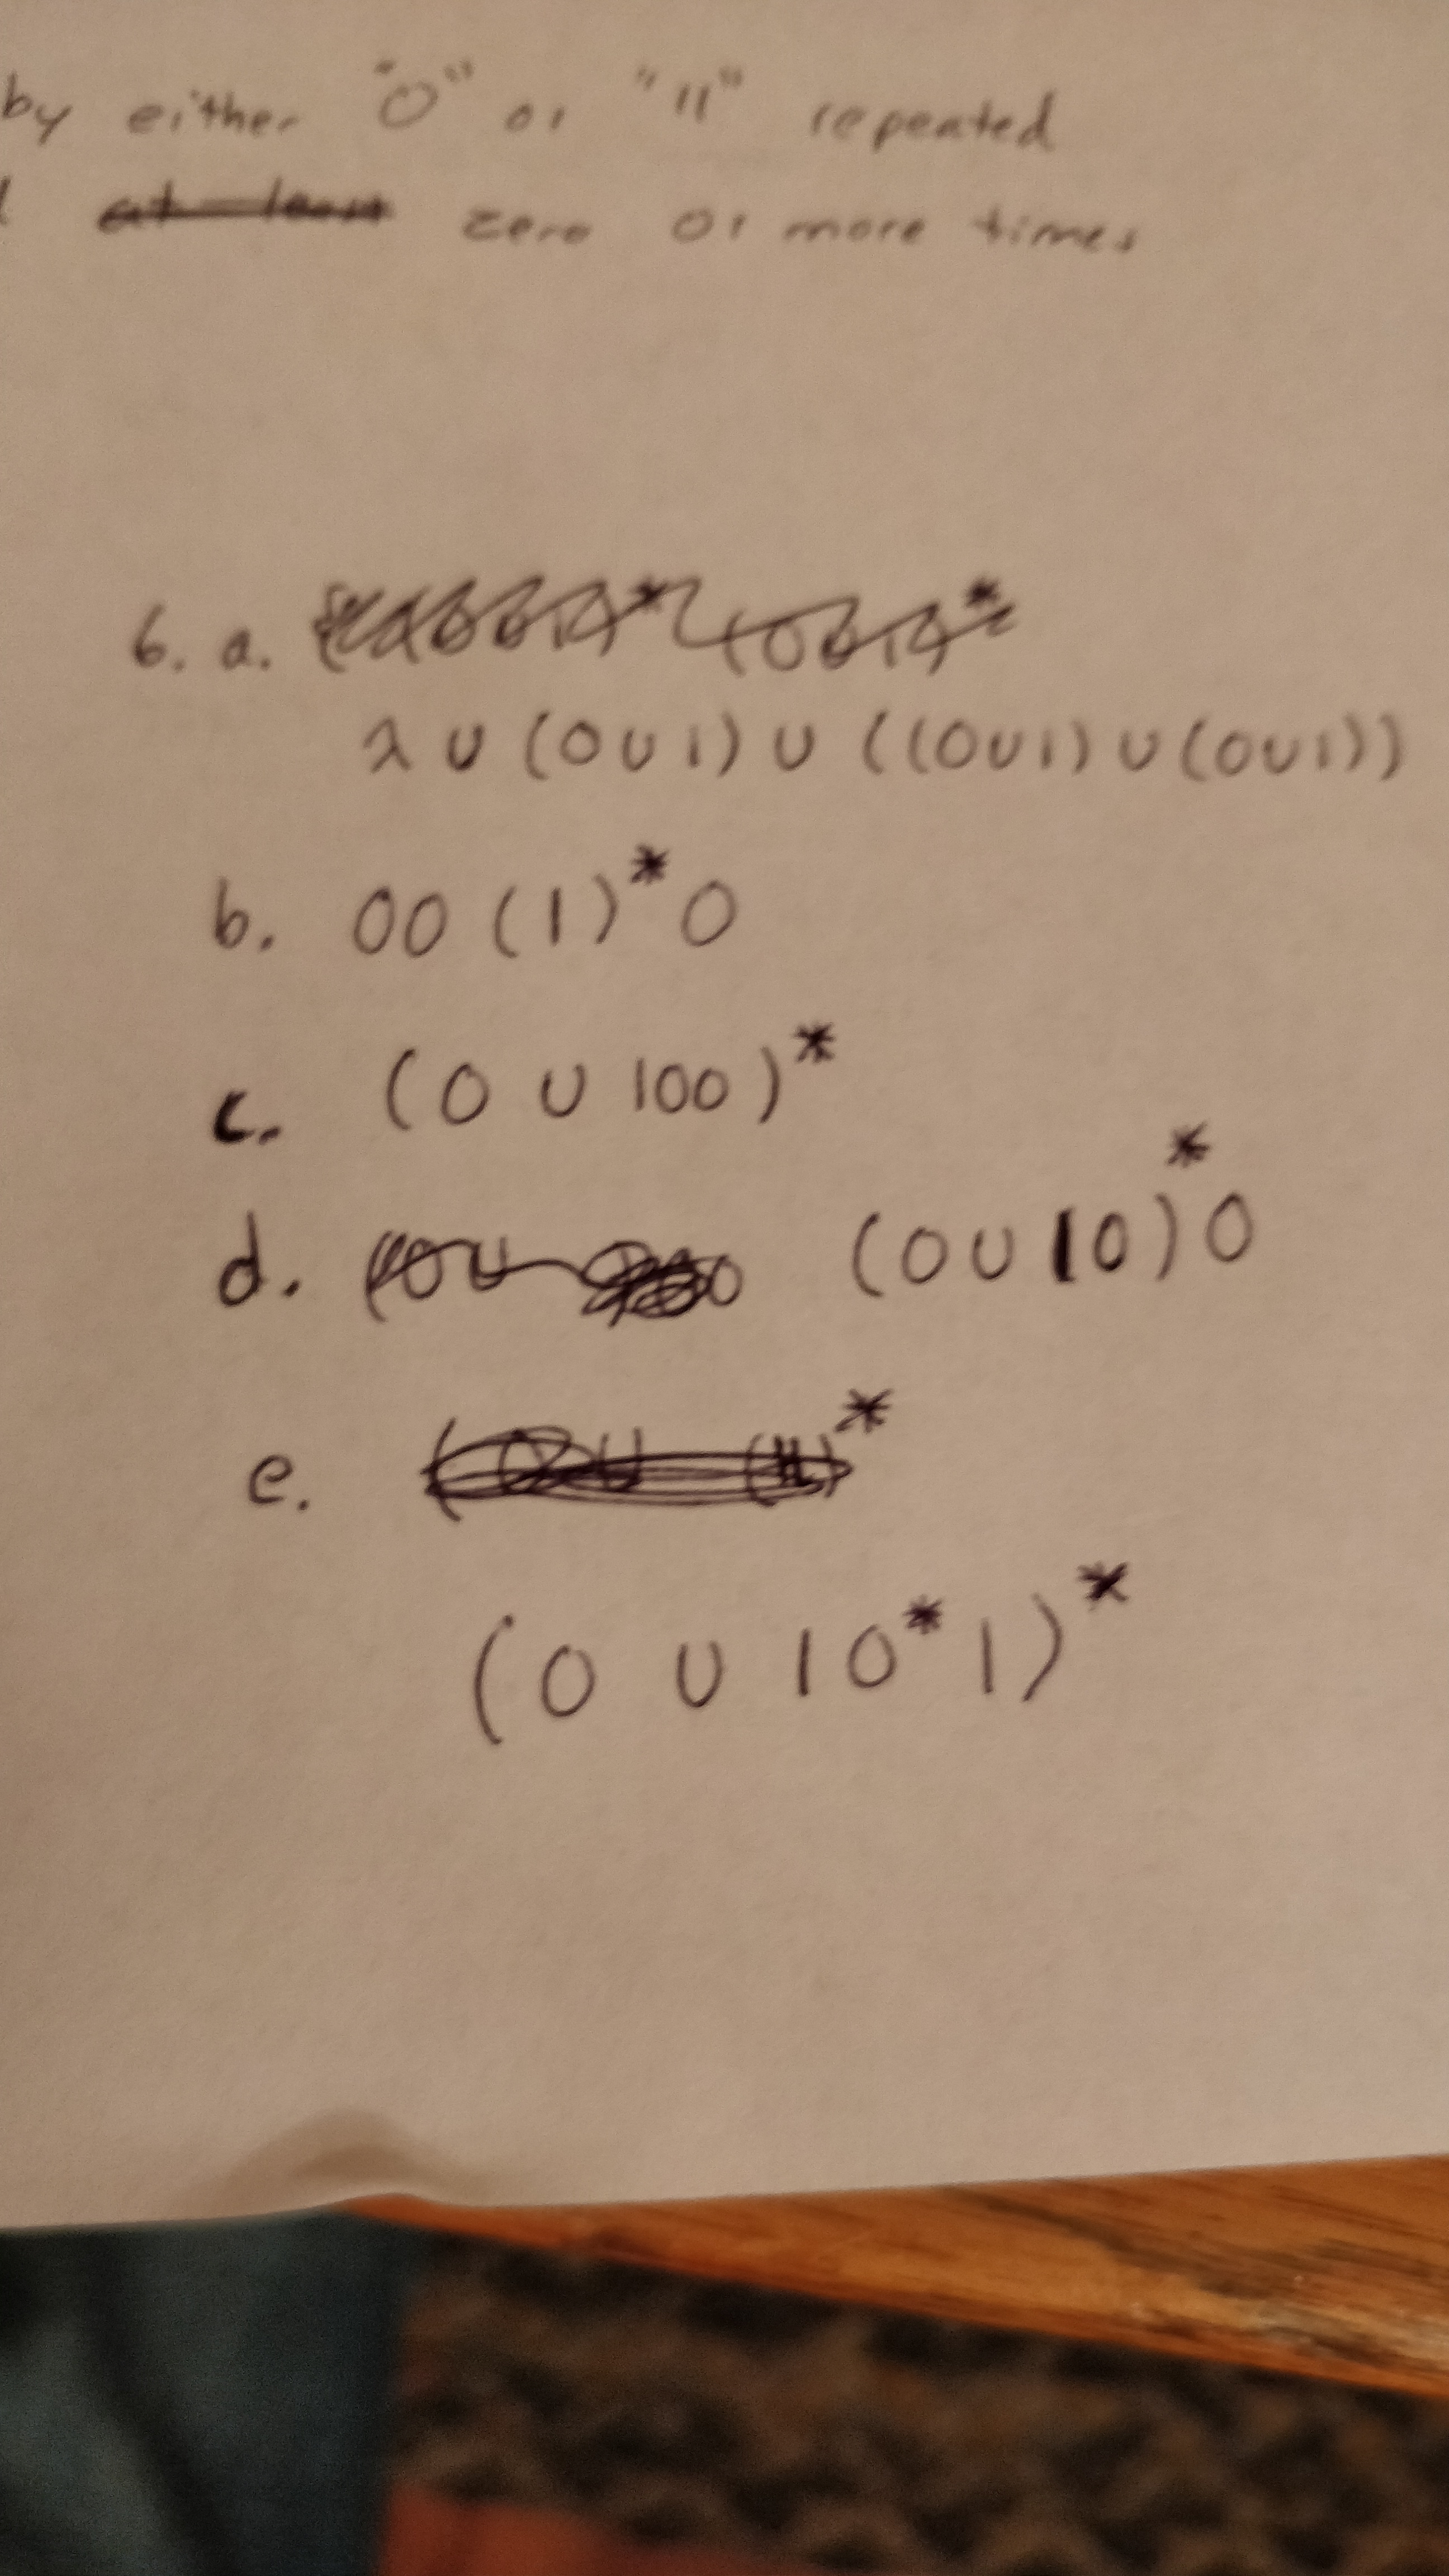 by either "0" or "11" repeated
at least zero or more times
6. a.
λ ∪ (0 ∪ 1) ∪ ((0∪1) ∪ (0∪1))
b. 00 (1)* 0
c. (0 ∪ 100)*
d. (0 ∪ 10)* 0
e.
(0 ∪ 10*1)*